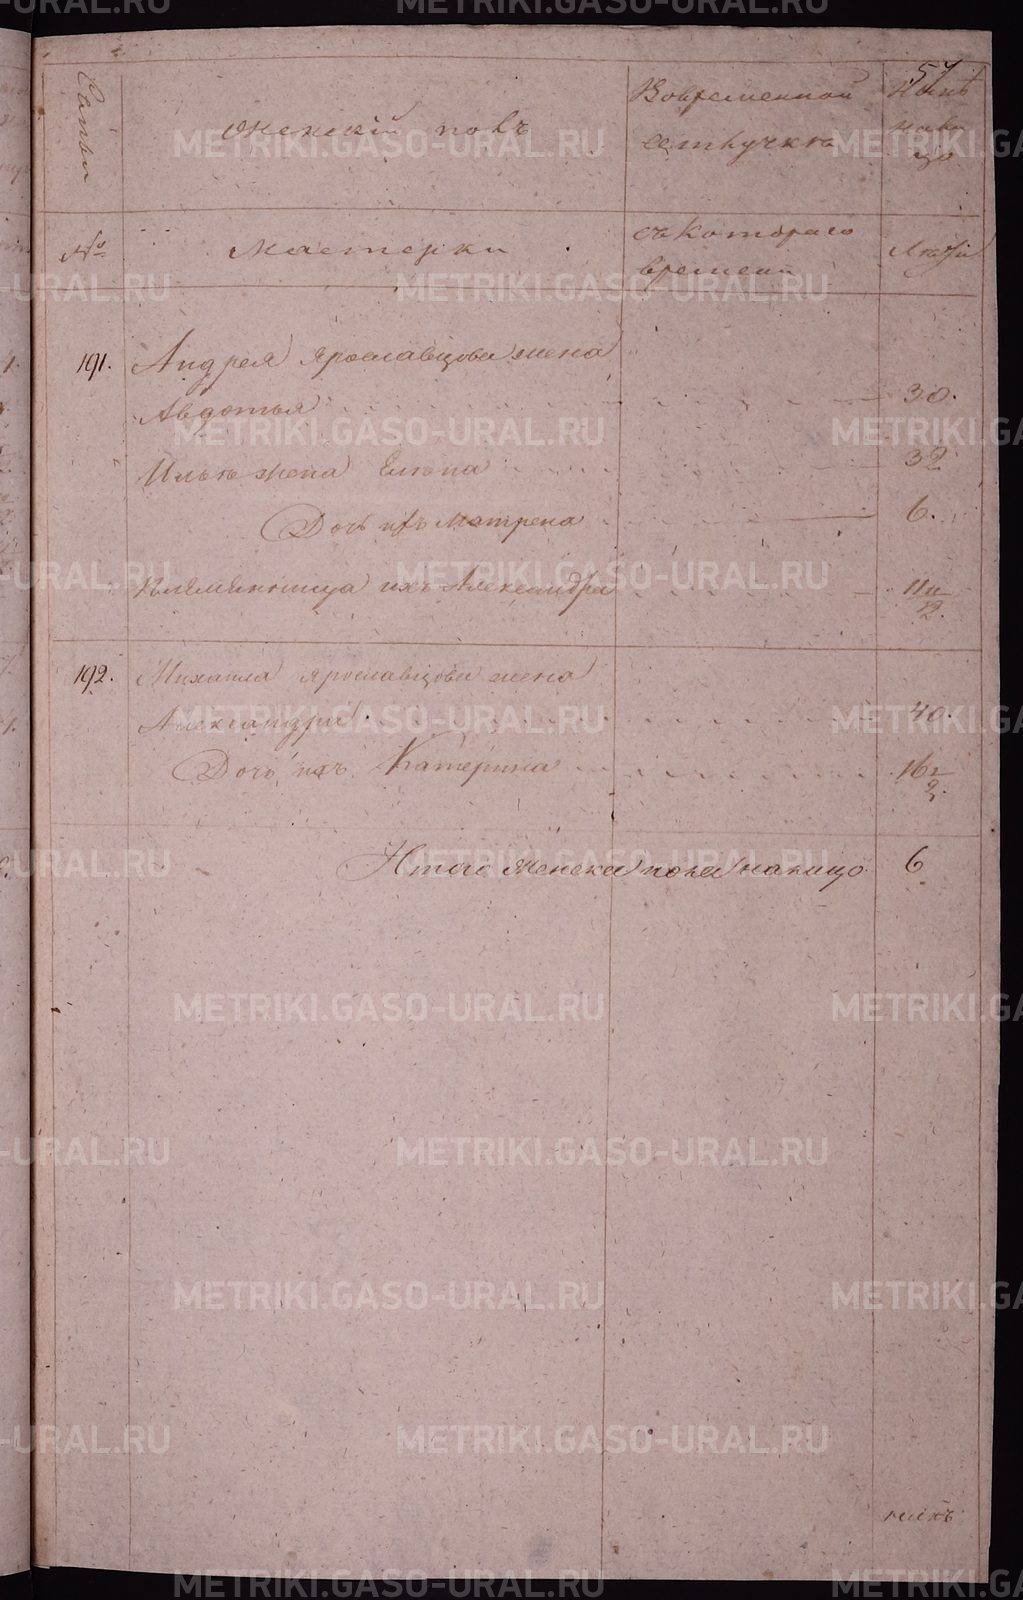 57
Семьи
Женскій полъ
Во временной
отлучкѣ
Нынѣ
на ли
цо
№
Мастерки
съ котораго
времени
Лѣта
191.
Андрея Ярославцова жена
Авдотья 30.
Ильи жена Елена 32
Дочь ихъ Матрена 6.
Племянница ихъ Александра 11 и
12.
192.
Михаила Ярославцова жена
Александра 40.
Дочь ихъ Катерина 16 1
2.
Итого женска пола налицо 6
METRIKI.GASO-URAL.RU